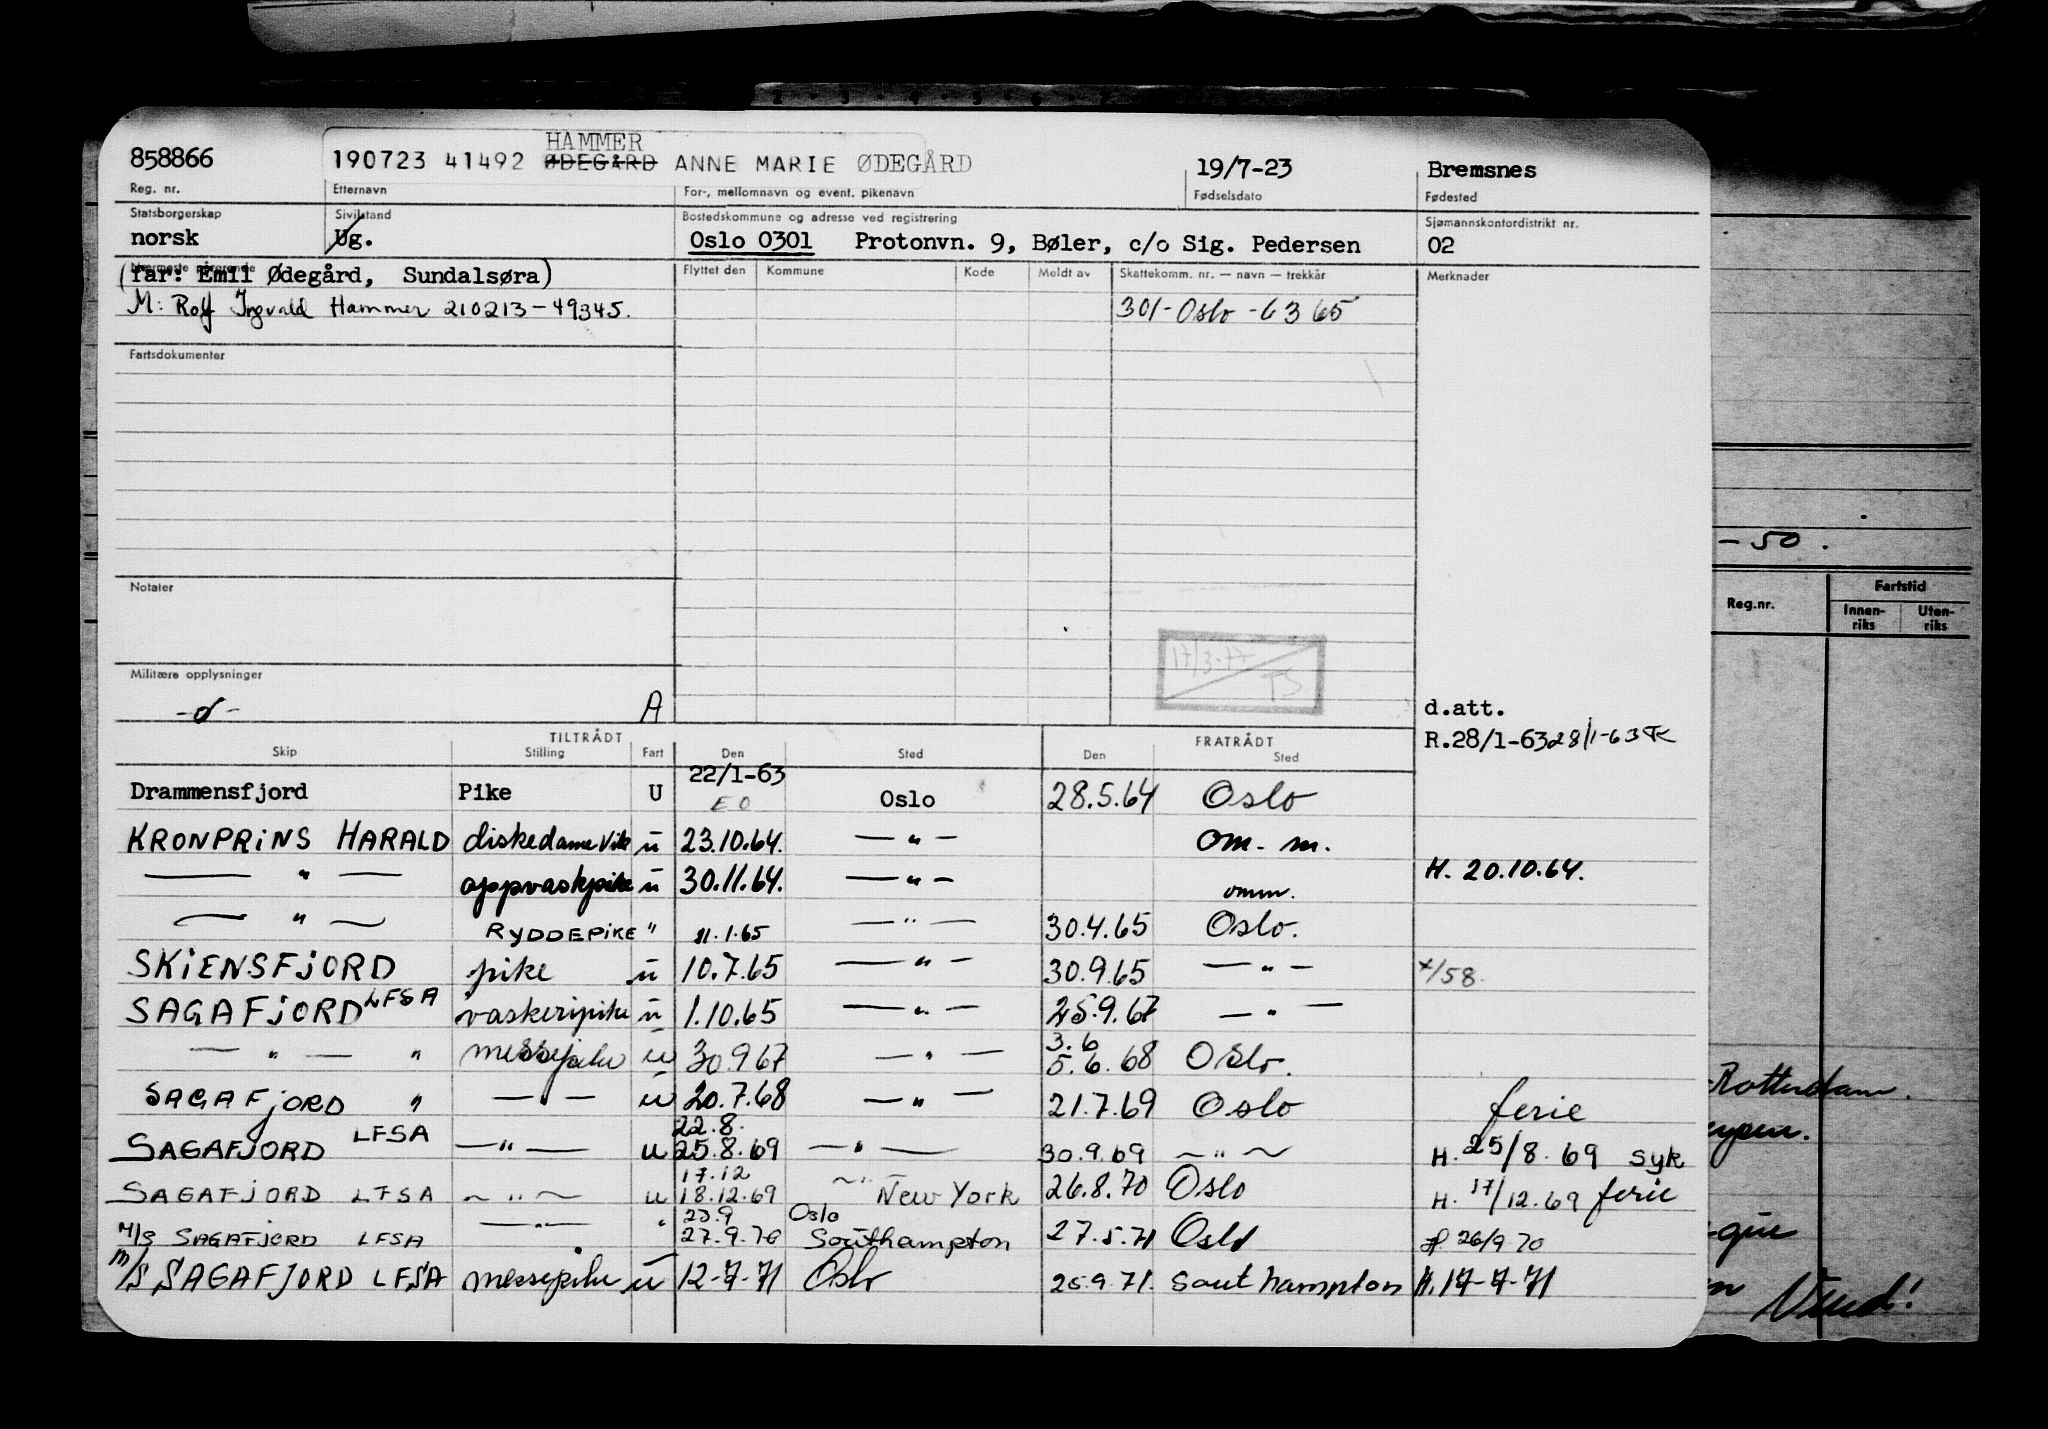 HAMMER
858866 190723 41492 ØDEGÅRD ANNE MARIE ØDEGÅRD 19/7-23 Bremsnes
Reg. nr. Etternavn For-, mellomnavn og event. pikenavn Fødselsdato Fødested
Statsborgerskap Sivilstand Bostedskommune og adresse ved registrering Sjømannskontordistrikt nr.
norsk Ug. Oslo 0301 Protonvn. 9, Bøler, c/o Sig. Pedersen 02
Nærmeste pårørende Flyttet den Kommune Kode Meldt av Skattekomm. nr. — navn — trekkår Merknader
(far: Emil Ødegård, Sundalsøra)
M: Rolf Ingvald Hammer 210213-49345. 301-Oslo-63 65
Fartsdokumenter
- 50 .
Notater
Reg.nr. Fartstid
Innen-riks Uten-riks
17/3-77 TS
Militære opplysninger
-o- A d.att.
R.28/1-63 28/1-63
TILTRÅDT FRATRÅDT
Skip Stilling Fart Den Sted Den Sted
22/1-63
Drammensfjord Pike U EO Oslo 28.5.64 Oslo
KRONPRINS HARALD diskedame Vik u 23.10.64. — " — om. m.
— " — oppvaskpike u 30.11.64. — " — omm. H. 20.10.64.
— " — RYDDEPIKE " 11.1.65 — " — 30.4.65 Oslo.
SKIENSFJORD pike u 10.7.65 — " — 30.9.65 — " — x/58.
SAGAFJORD LFSA vaskeripike u 1.10.65 — " — 25.9.67 — " —
3.6
— " — " messepike u 30.9.67 — " — 5.6.68 Oslo.
SAGAFJORD " — " — u 20.7.68 — " — 21.7.69 Oslo ferie
22.8.
SAGAFJORD LFSA — " — u 25.8.69 — " — 30.9.69 — " — H. 25/8. 69 syk
17.12 — " —
SAGAFJORD LFSA — " — u 18.12.69 New York 26.8.70 Oslo H. 17/12.69 ferie
23.9 Oslo
M/S SAGAFJORD LFSA — " — " 27.9.70 Southampton 27.5.71 Oslo H. 26/9 70
M/S SAGAFJORD LFSA messepike u 12-7-71 Oslo 25.9.71. Southampton H. 17-7-71
Rotterdam.